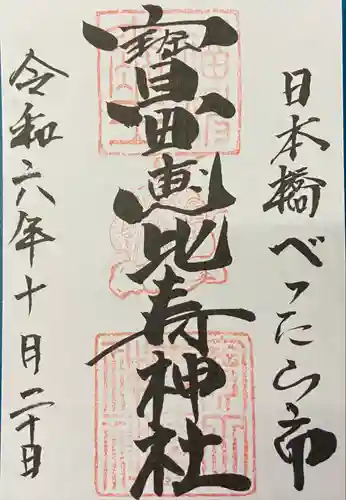 日本橋べったら市
寶田恵比寿神社
令和六年十月二十日